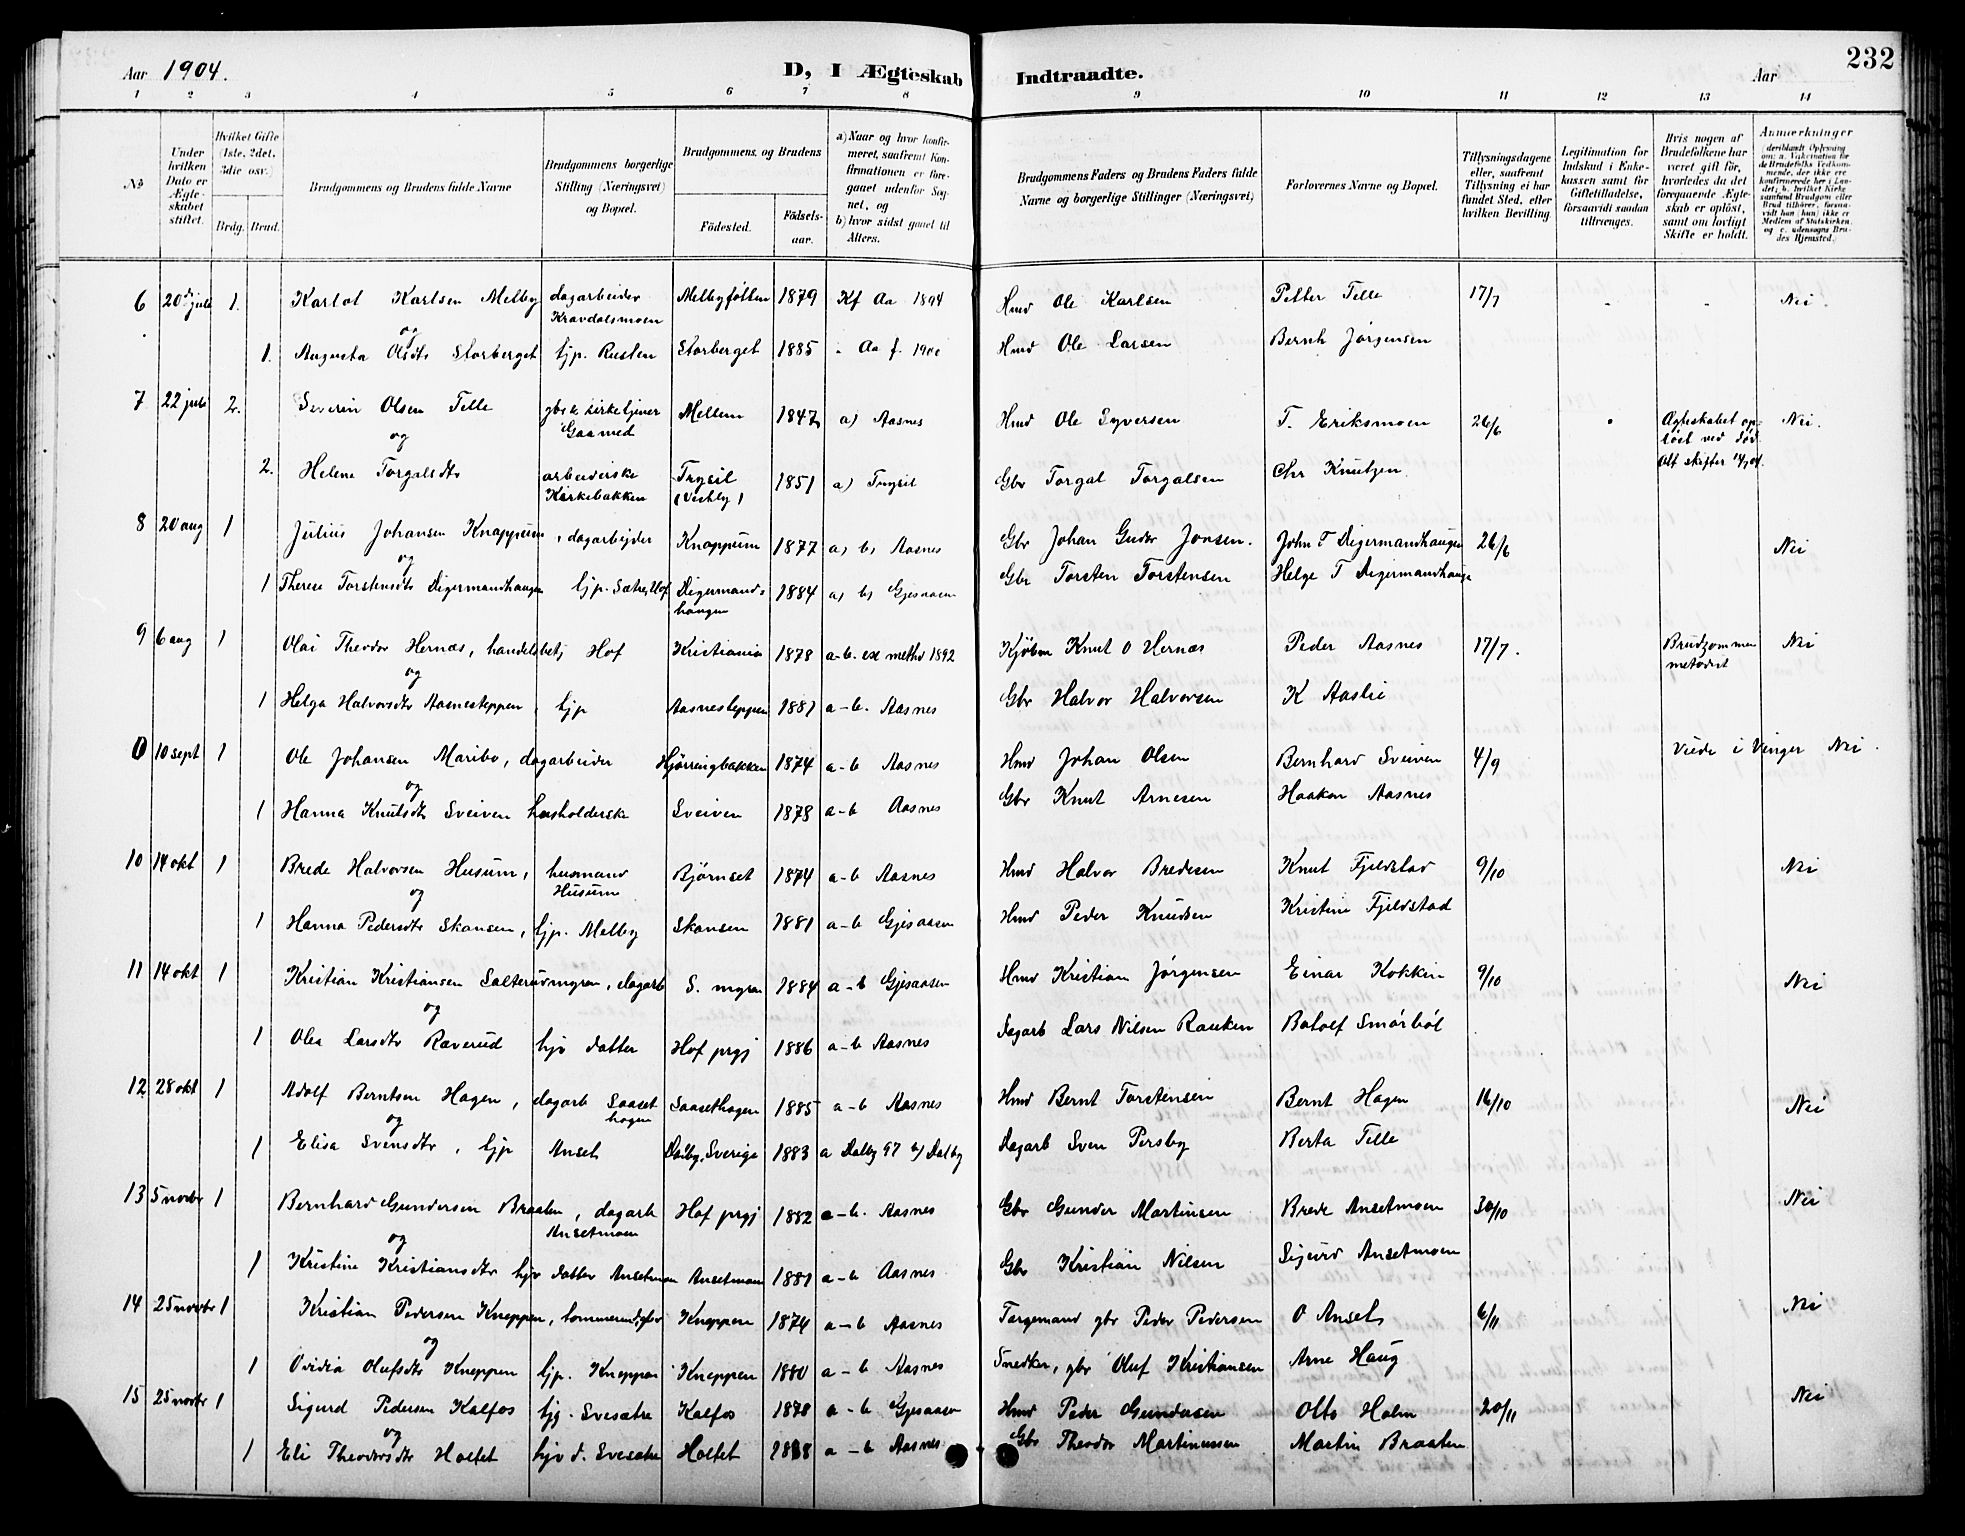 Aar 1904. D, I Ægteskab Indtraadte. Aar 232
1 2 3 4 5 6 7 8 9 10 11 12 13 14
No
Under hvilken Dato er Ægteskabet stiftet.
Hvilket Gifte (1ste, 2det, 3die osv.)
Brdg. Brud.
Brudgommens og Brudens fulde Navne
Brudgommens borgerlige Stilling (Næringsvei) og Bopæl.
Brudgommens og Brudens
Fødested. Fødselsaar.
a) Naar og hvor konfirmeret, saafremt Konfirmationen er foregaaet udenfor Sognet, og
b) hvor sidst gaaet til Alters.
Brudgommens Faders og Brudens Faders fulde Navne og borgerlige Stillinger (Næringsvei)
Forlovernes Navne og Bopæl.
Tillysningsdagene eller, saafremt Tillysning ei har fundet Sted, efter hvilken Bevilling.
Legitimation for Indskud i Enkekassen samt for Giftetilladelse, forsaavidt saadan tiltrænges.
Hvis nogen af Brudefolkene har været gift før, hvorledes da det foregaaende Ægteskab er opløst, samt om lovligt Skifte er holdt.
Anmerkninger (deriblandt Oplysning om: a. Vakcination for de Brudefolks Vedkommende, der ikke ere konfirmerede her i Landet; b. hvilket Kirkesamfund Brudgom eller Brud tilhører, forsaavidt han (hun) ikke er Medlem af Statskirken, og c. udensogns Brudes Hjemsted.)
6 20de juli 1. Karlot Karlsen Melby dagarbeider Kravdalsmoen Melbyføtten 1879 Kf Aa 1894 Hmd Ole Karlsen Petter Telle 17/7 - - Nei.
og
1. Augusta Olsdtr Storberget tjp. Rusten Storberget 1885 " Aa f. 1900 Hmd Ole Larsen Bernh Jörgensen
7 22 juli 2. Severin Olsen Telle gbr & kirketjener Gaamed Mellem 1847 a) Aasnes Hmd Ole Syversen T. Eriksmoen 26/6 Ægteskabet opløst ved død. Nei.
og
2. Helene Torgalsdtr arbeiderske Kirkebakken Trysil (Vestby) 1851 a) Trysil Gbr Torgal Torgalsen Chr Knutzen Alt skifter
8 20 aug 1 Julius Johansen Knappum, dagarbeider Knappum 1877 a) b) Aasnes Gbr Johan Guder Jonsen. John T Digermandhaugen 26/6 Nei
og
1 Therese Torstensdtr Digermandhaugen tjp. Sætre, Hof Digermandshaugen 1884 a) b) Gjesaasen Gbr Torsten Torstensen Helge T Digermandhauge
9 6 aug 1 Olai Theodor Hernæs, handelsbetj Hof Kristiania 1878 a-b. ex meth 1892 Kjøbm Knut O Hernæs Peder Aasnes 17/7. Brudgommen metodist Nei
og
1 Helga Halvorsdtr Aasnesteppen, tjp Aasnesteppen 1881 a-b. Aasnes Gbr Halvor Halvorsen K Aaslie
0 10 sept 1 Ole Johansen Maribo, dagarbeider Hjørringbakken 1874 a-b Aasnes Hmd Johan Olsen Bernhard Sveiven 4/9 Viede i Vinger Nei.
og
1 Hanna Knutsdtr Sveiven husholderske Sveiven 1878 a-b Aasnes Gbr Knut Arnesen Haakon Aasnes
10 14 okt 1 Brede Halvorsen Husum, husmand Husum Bjørnset 1874 a-b Aasnes Hmd Halvor Bredesen Knut Fjeldstad 9/10 Nei
og
1 Hanna Pedersdtr Skansen, tjp. Melby Skansen 1881 a-b Gjesaasen Hmd Peder Knudsen Kristine Fjeldstad
11 14 okt 1 Kristian Kristiansen Salterudmyren, dagarb S. myren 1884 a-b Gjesaasen Hmd Kristian Jörgensen Einar Kokkin 9/10 Nei
og
1 Olea Larsdtr Raverud hjv datter Hof prgj 1886 a-b Aasnes Dagarb Lars Nilsen Rauken Botolf Smörböl
12. 28 okt 1 Adolf Berntsen Hagen, dagarb Saaset hagen Saasethagen 1885 a-b Aasnes Hmd Bernt Torstensen Bernt Hagen 16/10 Nei
og
1 Elisa Svensdtr, tjp Anset Dalby, Sverige 1883 a Dalby 97 b) Dalby Dagarb Sven Persby Berta Telle
13 5 novbr 1 Bernhard Gundersen Braaten, dagarb Ansetmoen Hof prgj 1882 a-b. Aasnes Gbr Gunder Martinsen Brede Ansetmoen 30/10 Nei
og
1 Kristine Kristiansdtr hjv datter Ansetmoen Ansetmoen 1881 a-b Aasnes Gbr Kristian Nilsen Sigurd Ansetmoen
14 25 novbr 1 Kristian Pedersen Kneppen, tømmermd, gbr Kneppen 1874 a-b Aasnes Targemand gbr Peder Pedersen O Anset 6/11 Nei
og
1 Ovidia Olufsdtr Kneppen tjp. Kneppen Kneppen 1880 a-b Aasnes Snedker, gbr Oluf Kristiansen Arne Haug
15 25 novbr 1 Sigurd Pedersen Kalfos tjg. Svesætre Kalfos 1878 a-b Gjesaasen Hmd Peder Gundersen Otto Holm 20/11 Nei
og
1 Eli Theodorsdtr Holtet hjv d. Svesætre Holtet 1888 a-b Aasnes Gbr Theodor Martinussen Martin Braaten